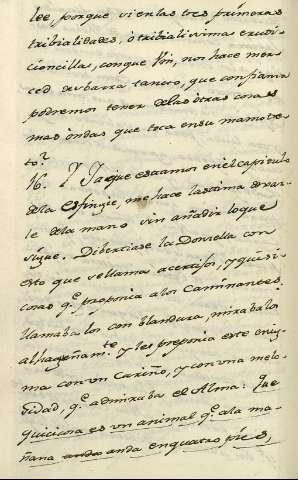 lee, porque si en las tres primeras
tribialidades, ò tribialissima erudi-
cioncilla, conque fin, nos hace mer-
ced de barra tanto, que confianza
podremos tener de las otras cosas
mas ondas que toca en su mamotre-
to?
16. Y Ja que estamos en el capitulo
de la esfingie, me hace lastima dexar-
le de la mano sin añadir lo que
sigue. Dibertiase la Donsella con
esto que se llama acertijos, y quisi-
cosas q.ᵉ proponia a los Caminantes.
llamaba los con blandura, mirabalos
alhagueñam.ᵗᵉ y les proponia este enig-
ma con un Cariño, y con una melo-
sidad, q.ᵉ admiraba el Alma: Que
quisicosa es un animal q.ᵉ a la ma-
ñana anda en quatro pies,